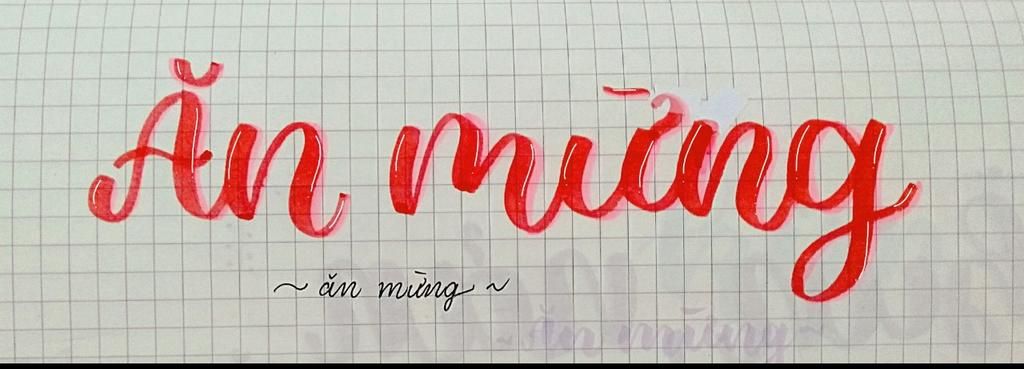 Ăn mừng
~ ăn mừng ~